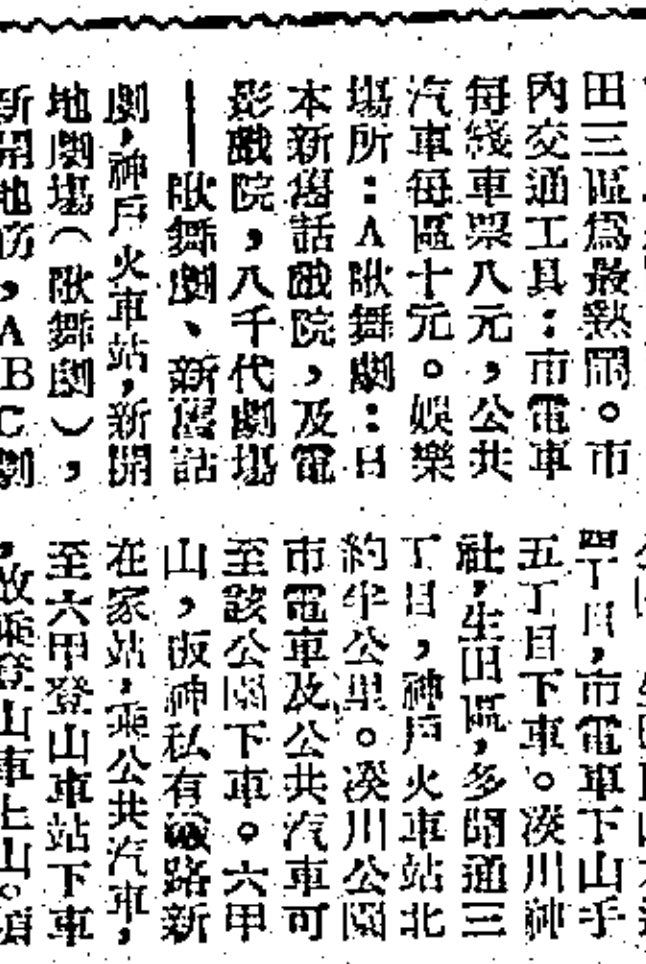 田三區爲最熱鬧。市
內交通工具：市電車
每綫車票八元，公共
汽車每區十元。娛樂
塲所：A歌舞劇：日
本新舊話戲院，及電
影戲院，八千代劇塲
——歌舞劇、新舊話
劇，神戶火車站，新開
地劇塲（歌舞劇），
新開地坊，ABC劇
四丁目，市電車下山手
五丁目下車。湊川神
社，生田區，多聞通三
丁目，神戶火車站北
約半公里。湊川公園
市電車及公共汽車可
至該公園下車。六甲
山，阪神私有鐵路新
在家站，乘公共汽車，
至六甲登山車站下車
，改乘登山車上山。須